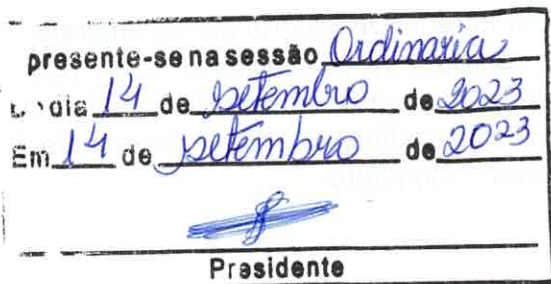 presente-se na sessão Ordinaria
dia 14 de setembro de 2023
Em 14 de setembro de 2023
Presidente